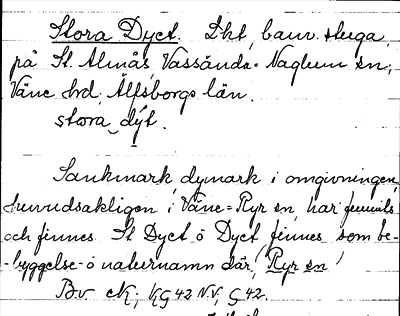 Stora Dyct. Lht, bauv. stuga
på St. Almås, Vassända-Naglum sn,
Väne hrd. Älfsborgs län.
stora dýt.
Sankmark, dymark i omgivningen,
huvudsakligen i Väne-Ryr sn, har funnits
och finnes. St Dyct o Dyct finnes som be-
-byggelse- o naturnamn där, Ryr sn!
Bv ek, KG 42 NV, G 42.